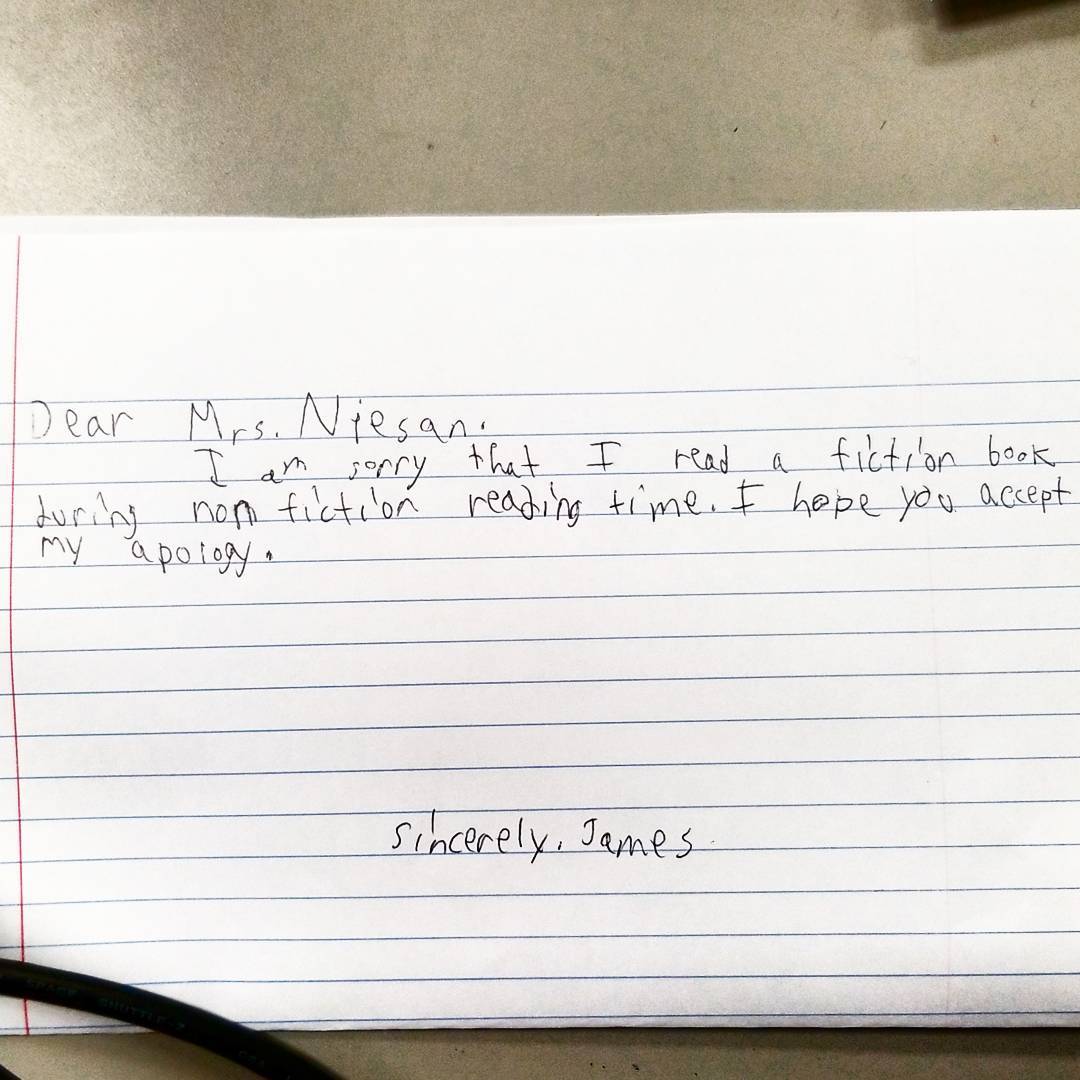 Dear Mrs. Niesan.
I am sorry that I read a fiction book
during non fiction reading time. I hope you accept
my apology.
Sincerely, James
SPACE SHUTTLE-Z